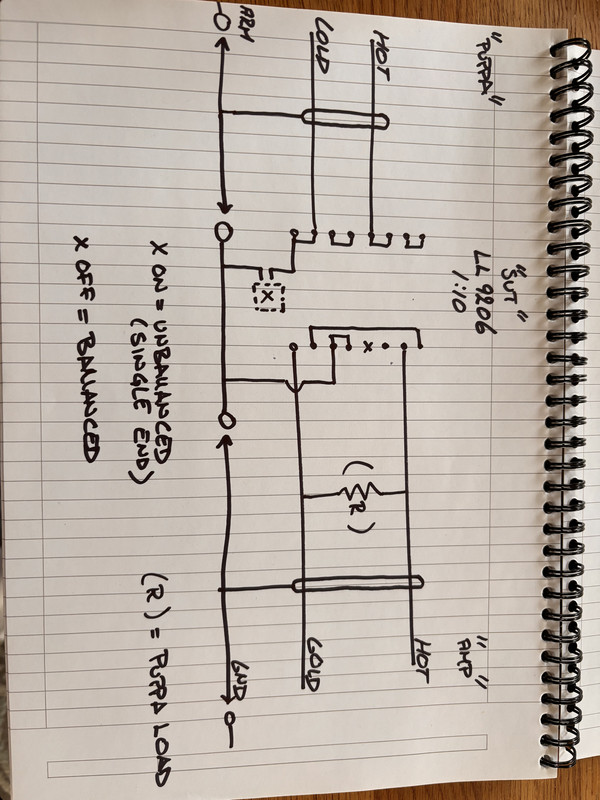 "PUPPA"
"SUT"
LL9206
1:10
"AMP"
HOT
HOT
COLD
x
(R)
COLD
X
ARM
GND
X ON = UNBALLANCED
(SINGLE END)
(R) = PUPPA LOAD
X OFF = BALLANCED